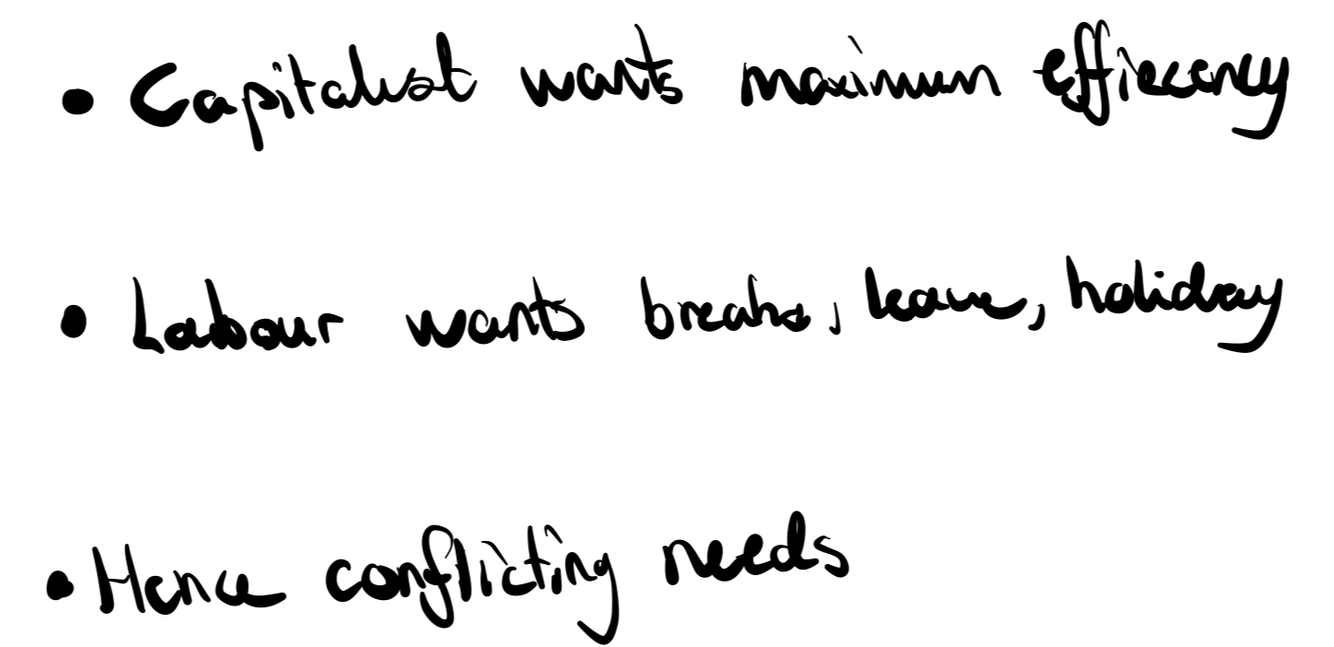 • Capitalist wants maximum effiecency
• Labour wants breaks, leave, holiday
• Hence conflicting needs